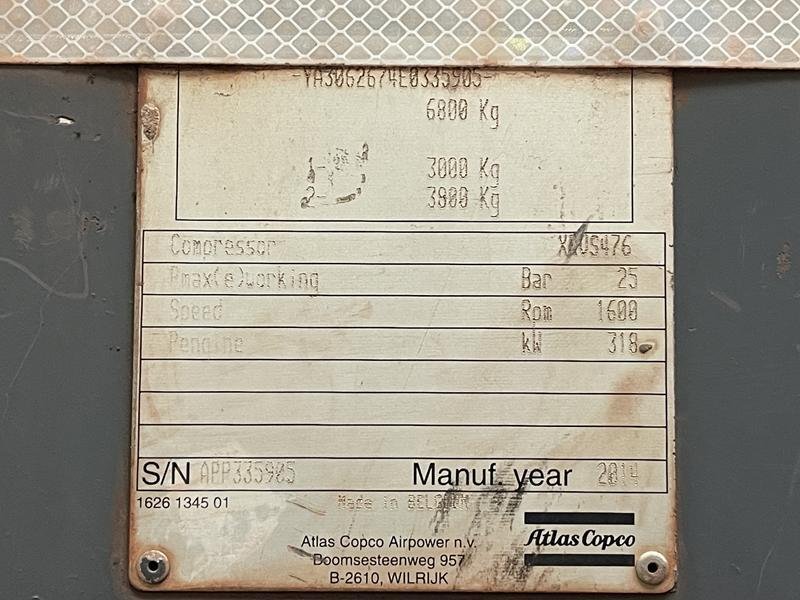 -YA3062674E0335905-
6800 Kg
1- 3000 Kg
2- 3800 Kg
Compressor
Pmax(e)working Bar 25
Speed Rpm 1600
Pengine kW 318
S/N APP335905 Manuf. year 2014
1626 1345 01 Made in BELGIUM
Atlas Copco Airpower n.v.
Boomsesteenweg 957
B-2610, WILRIJK
Atlas Copco